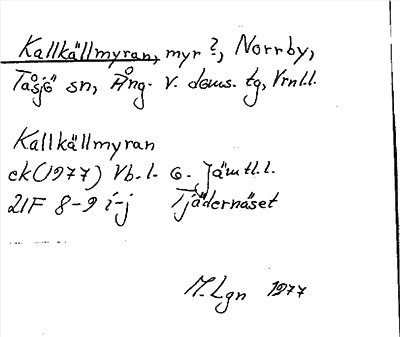 Kallkällmyran, myr ?, Norrby,
Tåsjö sn, Ång. v. doms. tg, Vrnl.l.
Kallkällmyran
ek (1977) Vb.l. o. Jämtl.l.
21F 8-9 i-j Tjädernäset
M. Lgn 1977